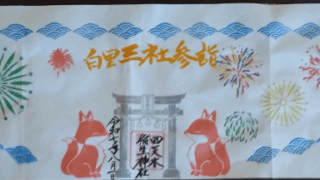 白里三社参詣
四天木
稲生神社
令和七年八月一日